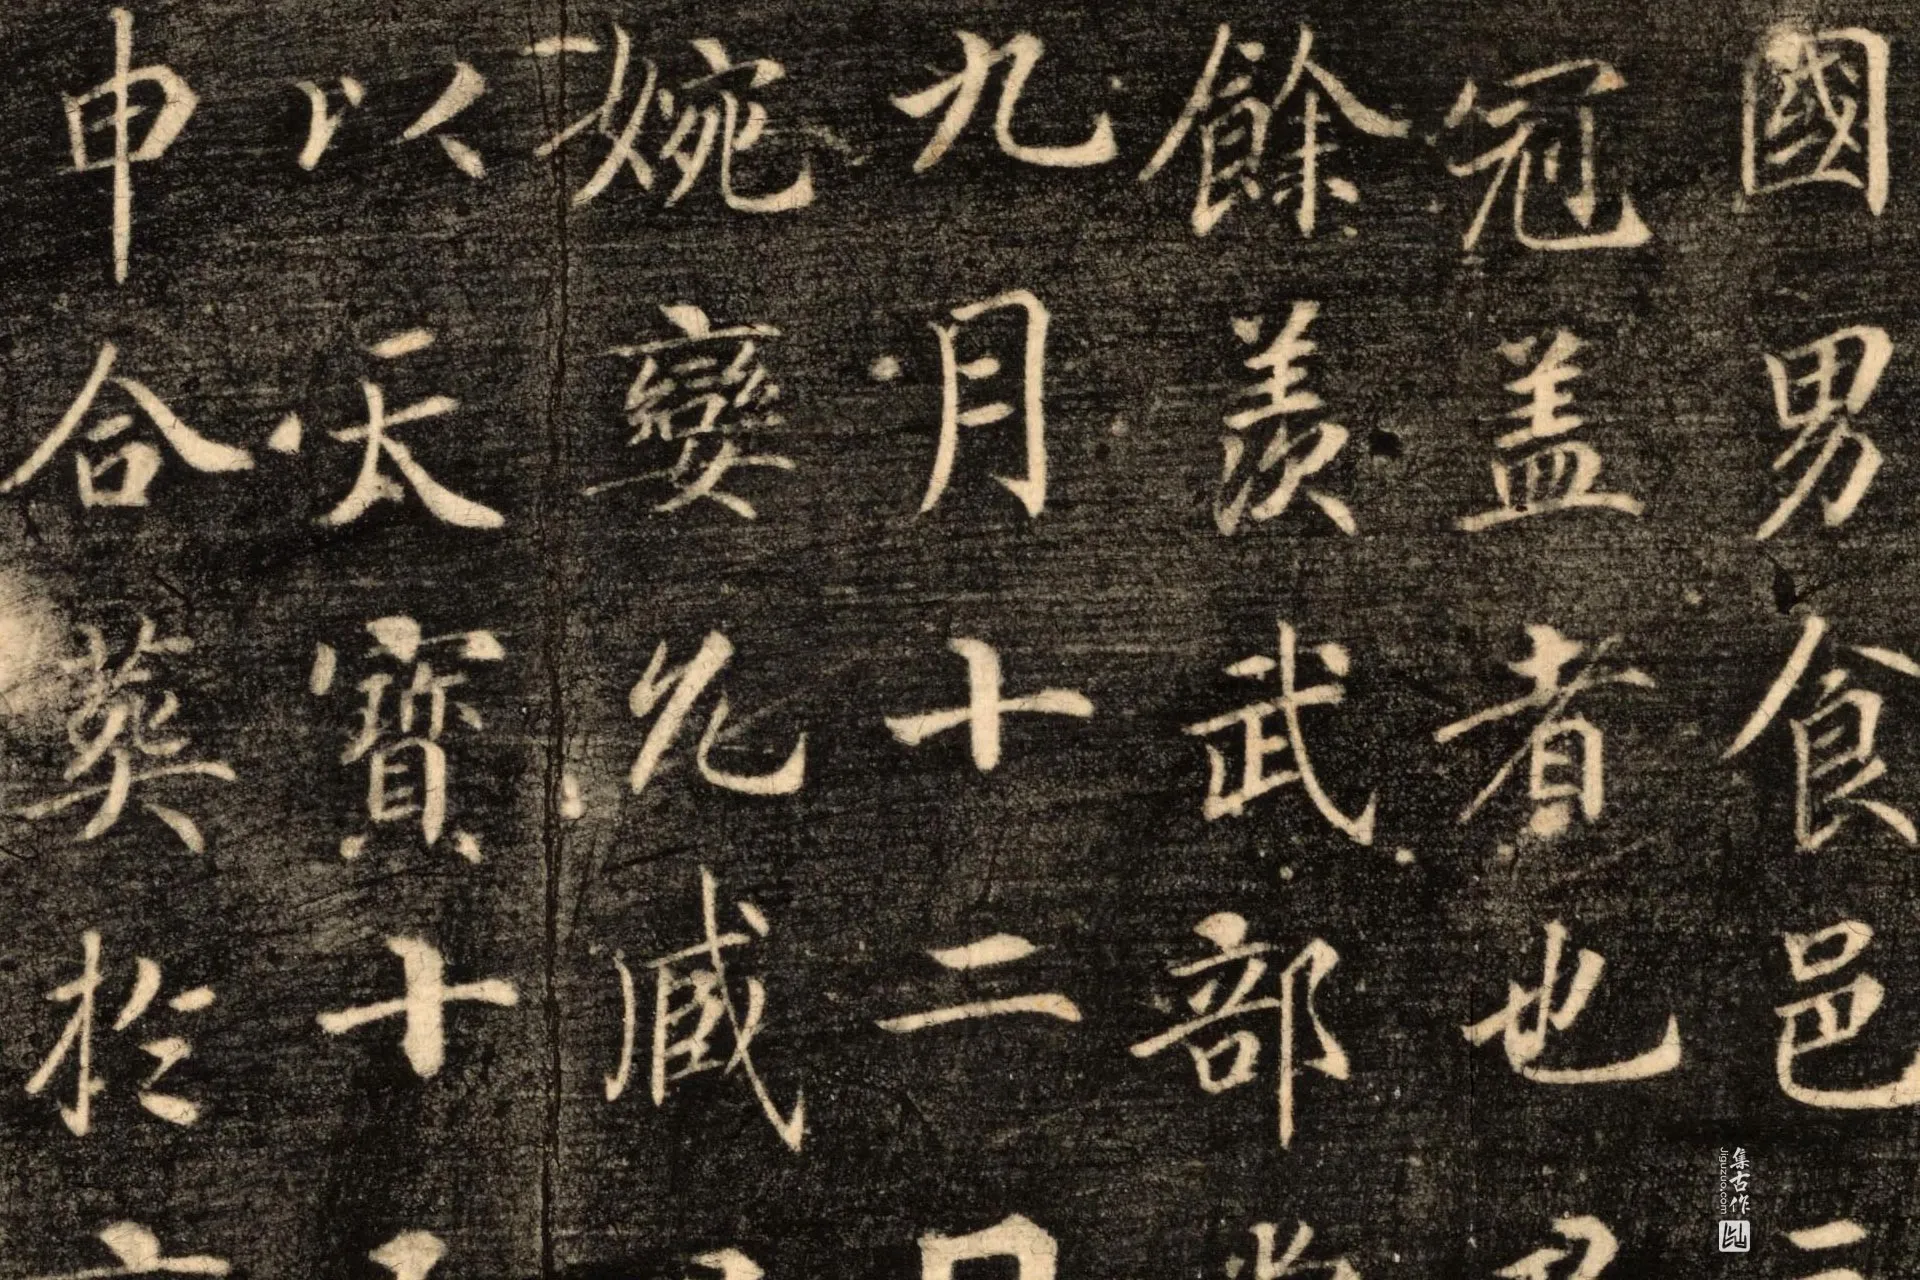 國男食邑
冠盖者也
餘羨武部
九月十二日
婉孌允臧
以天寶十
申合葬於
集古作
Jiguzuo.com